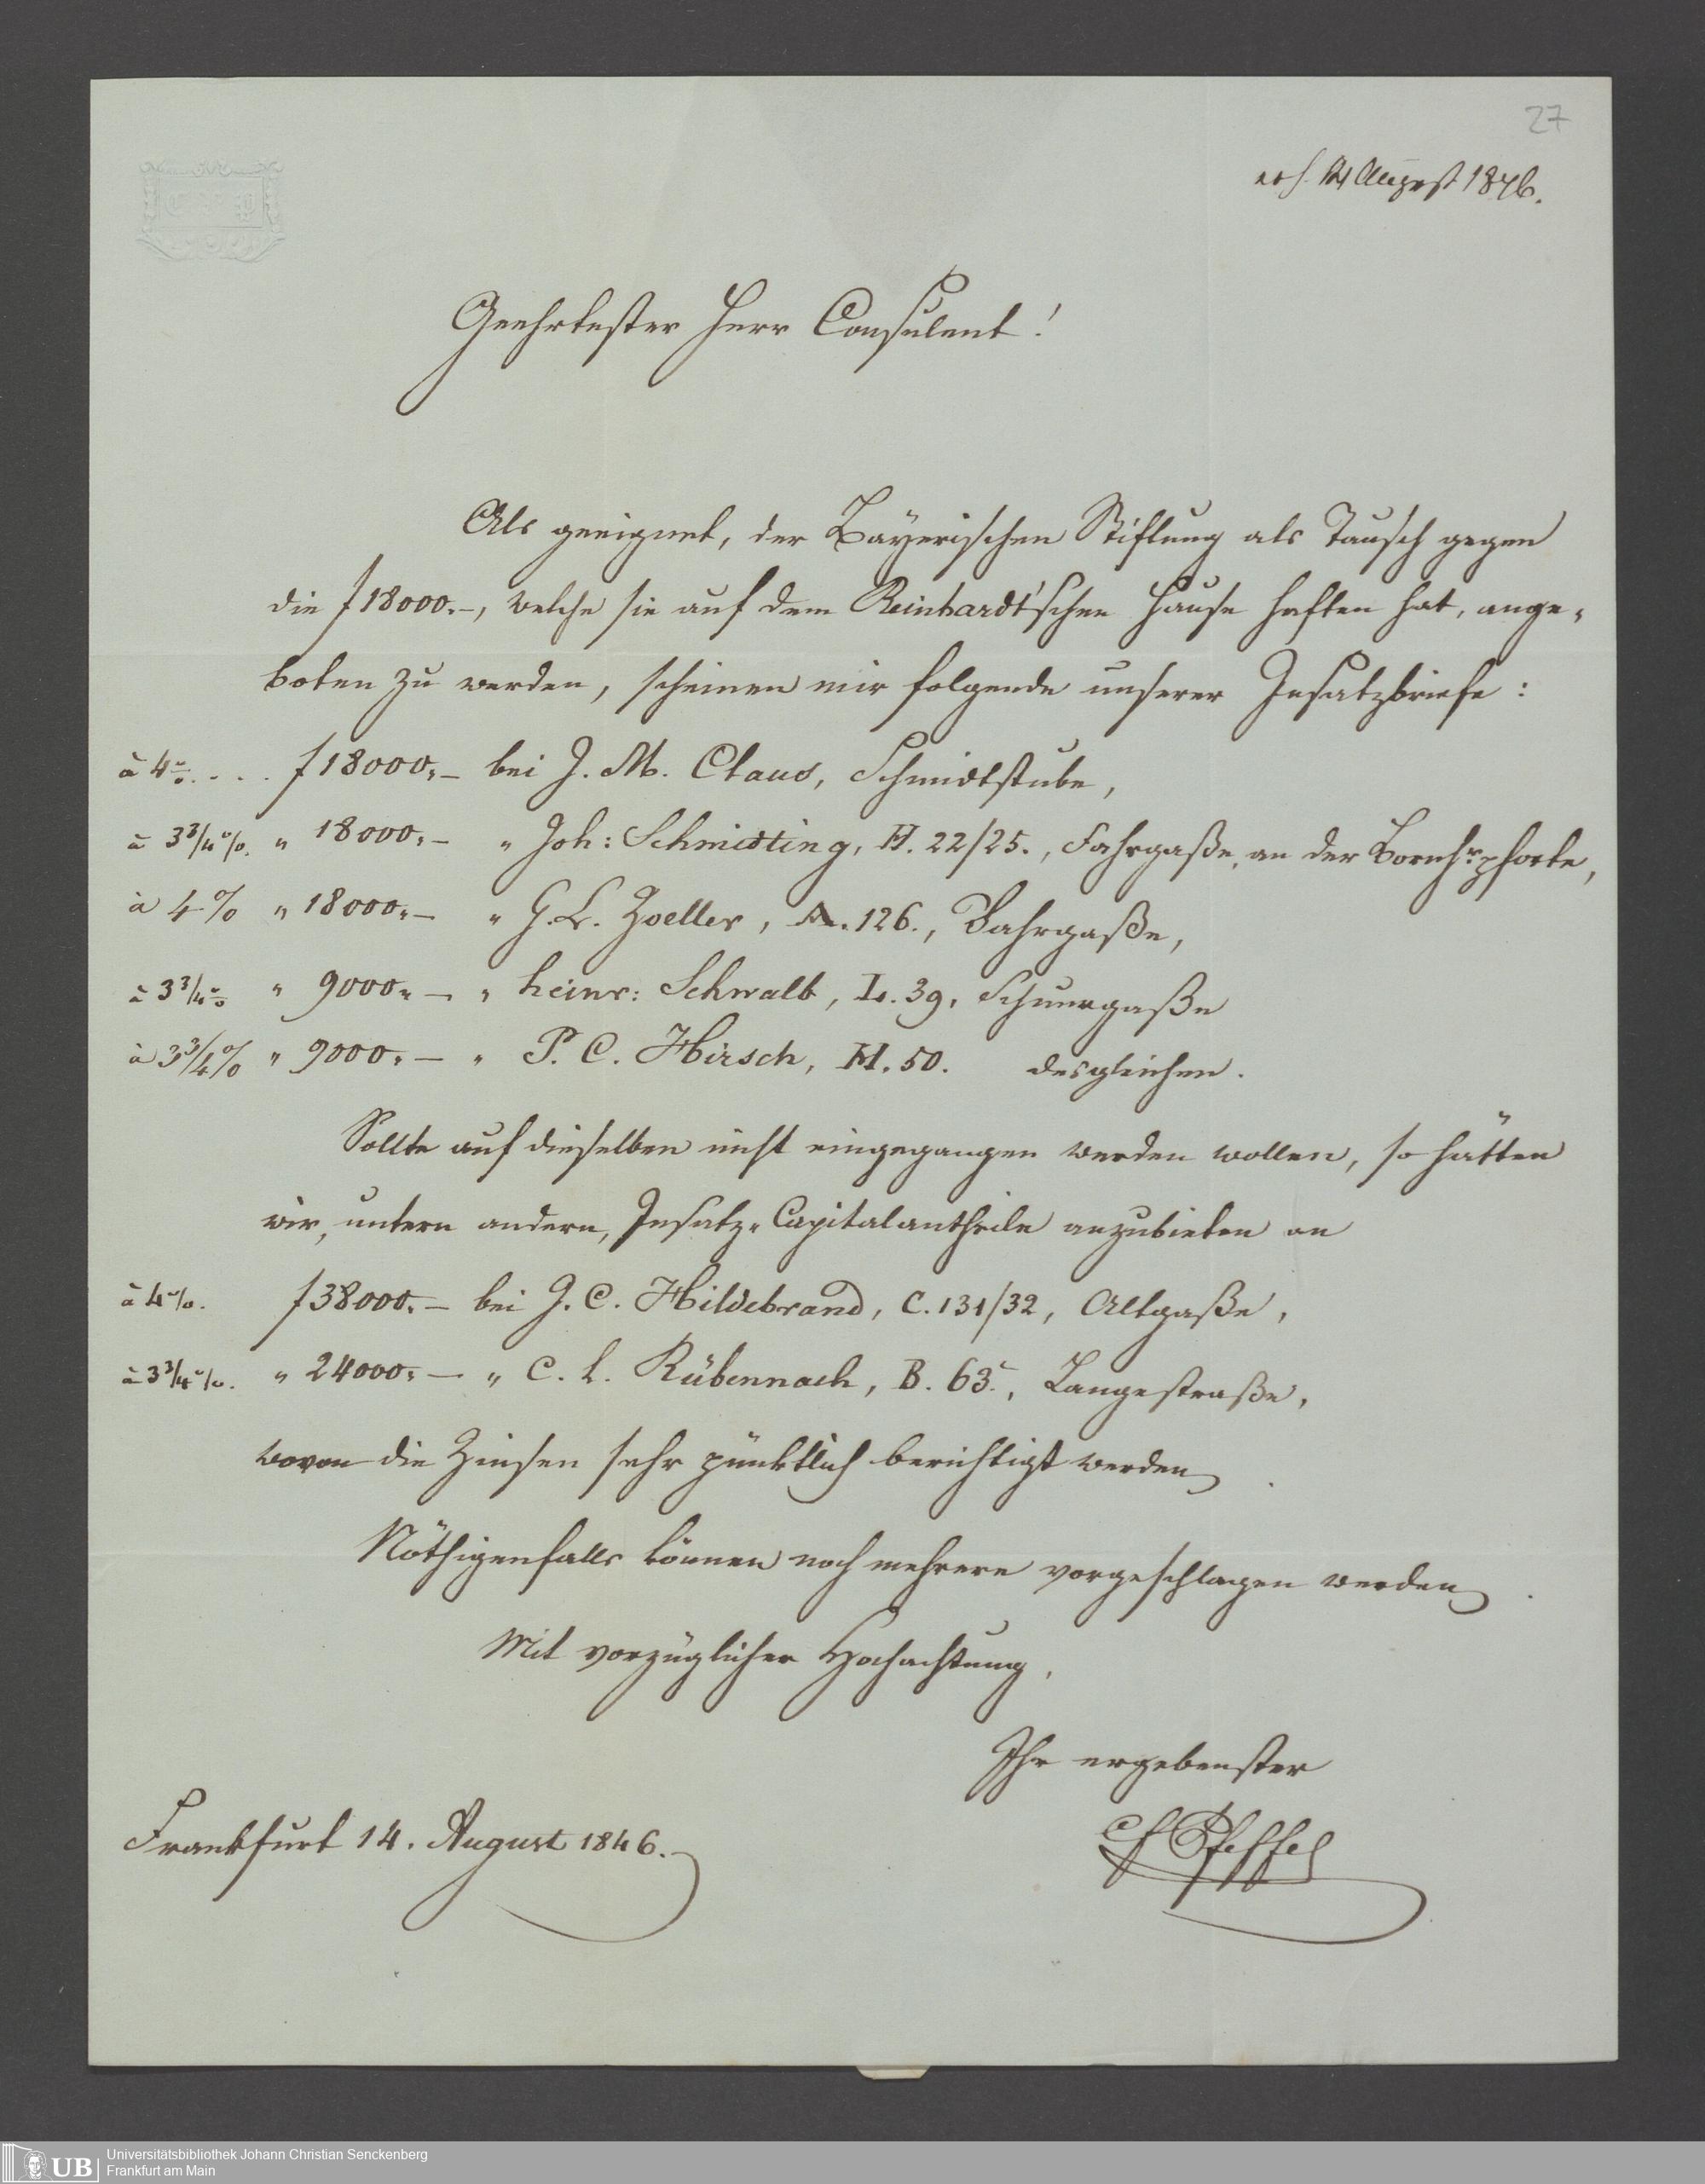 27
erh. 14 August 1846.
Geehrtester Herr Consulent!
Als geeignet, der Bayerischen Stiftung als Tausch gegen
die f 18000.–, welche sie auf dem Reinhardt'schen Hause haften hat, ange-
boten zu werden, scheinen mir folgende unserer Insatzbriefe:
à 4%. . . . f 18000.– bei J. M. Claus, Schmidtstube,
à 3 3/4 %. " 18000.– " Joh: Schmidting, H. 22/25., Fahrgaße, an der Bornhr. pforte,
à 4 % " 18000.– " G. L. Zoeller, A. 126., Fahrgaße,
à 3 3/4 % " 9000.– " Heinr: Schwalb, L. 39, Schnurgaße
à 3 3/4 % " 9000.– " P. C. Hirsch, H. 50. desgleichen.
Sollte auf dieselben nicht eingegangen werden wollen, so hätten
wir, untern andern, Insatz-Capitalantheile anzubieten an
à 4 %. f 38000.– bei J. C. Hildebrand, C. 131/32, Altgaße,
à 3 3/4 %. " 24000.– " C. L. Rübennach, B. 63., Langestraße,
wovon die Zinsen sehr pünktlich berichtigt werden.
Nöthigenfalls können noch mehrere vorgeschlagen werden.
Mit vorzüglicher Hochachtung,
Ihr ergebenster
CF Pfeffel
Frankfurt 14. August 1846.
UB Universitätsbibliothek Johann Christian Senckenberg
Frankfurt am Main